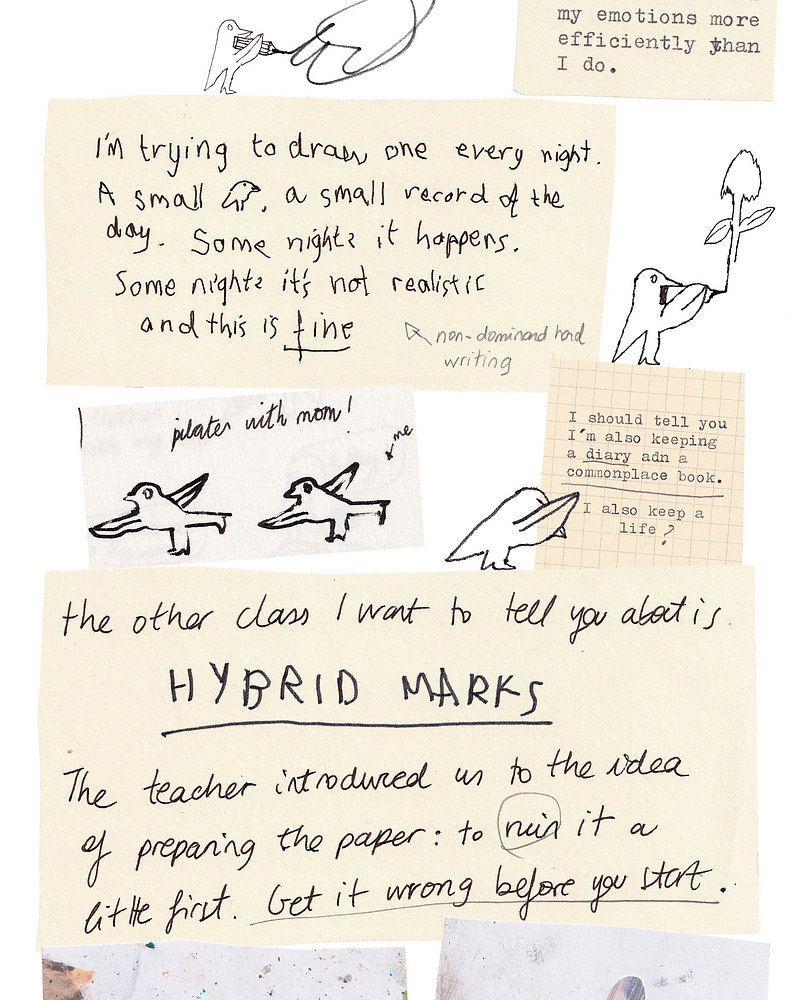 my emotions more
efficiently than
I do.
I'm trying to draw one every night.
A small , a small record of the
day. Some nights it happens.
Some nights it's not realistic
and this is fine
non-dominand hand
writing
pilates with mom!
me
I should tell you
I'm also keeping
a diary adn a
commonplace book.
I also keep a
life?
the other class I want to tell you about is
HYBRID MARKS
The teacher introduced us to the idea
of preparing the paper: to ruin it a
little first. Get it wrong before you start.